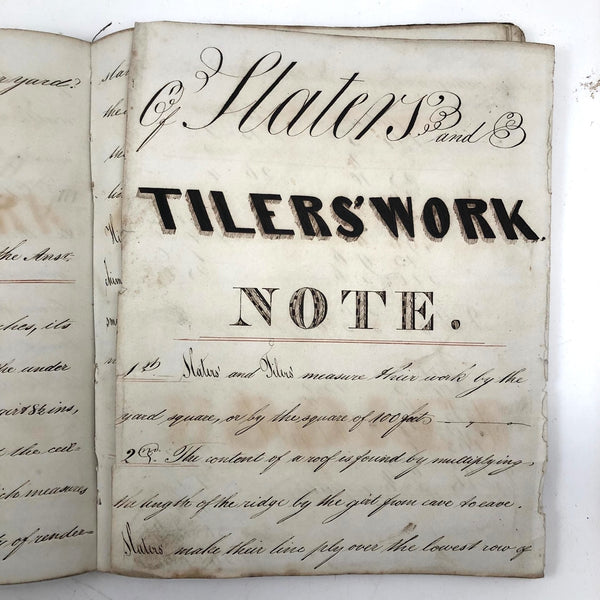 r yard?
the Ans.
ches, its
the under
girt 8½ ins,
t the ceil-
ich measures
ty of render-
slat
the
lin
Of Slaters and
TILERS' WORK.
NOTE.
1st Slaters' and Tilers' measure their work by the
yard square, or by the square of 100 feet
2nd. The content of a roof is found by multiplying
the length of the ridge by the girt from eave to eave.
Slaters' make their line ply over the lowest row of